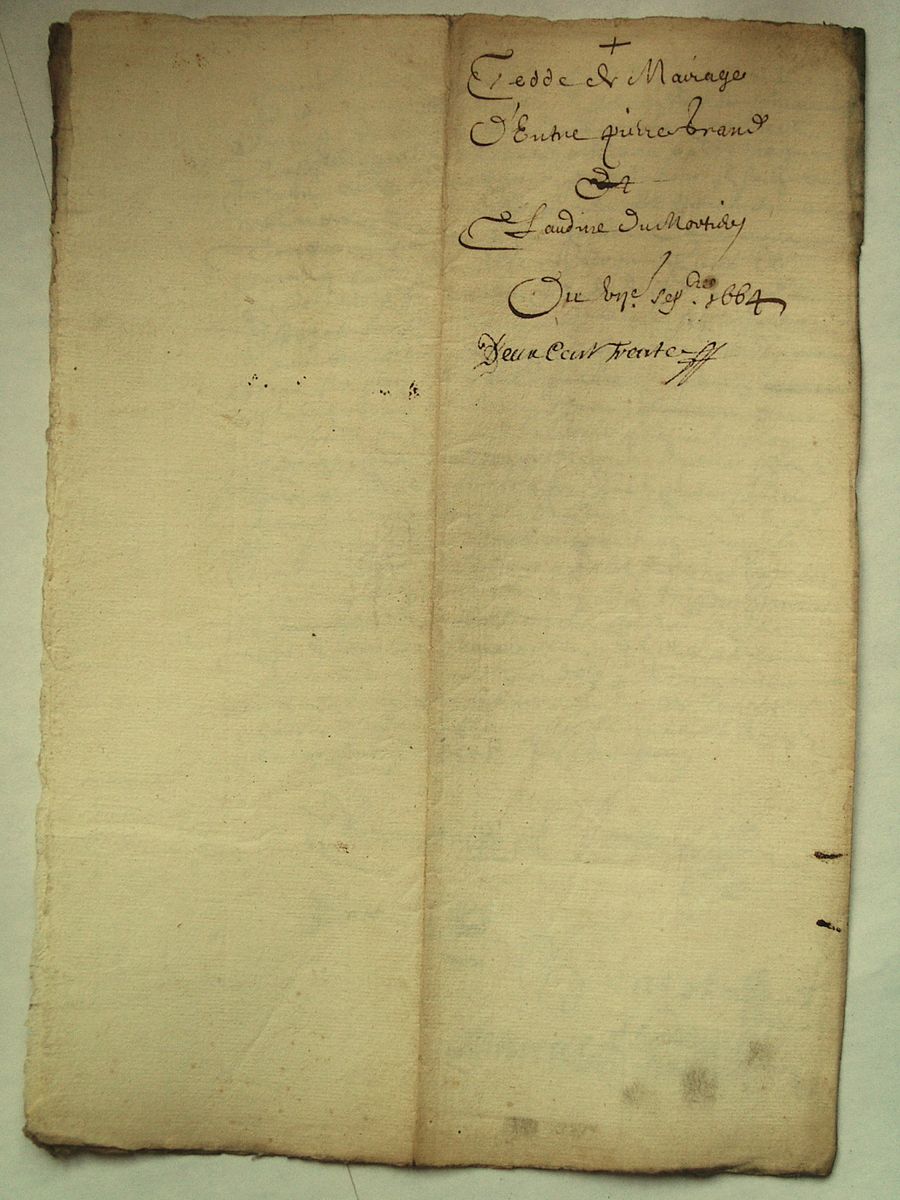 +
Cedde de Mariage
D'Entre pierre brand
Et
Claudine du Mortier
Du vije. sepbre. 1664
Deux Cent Trente